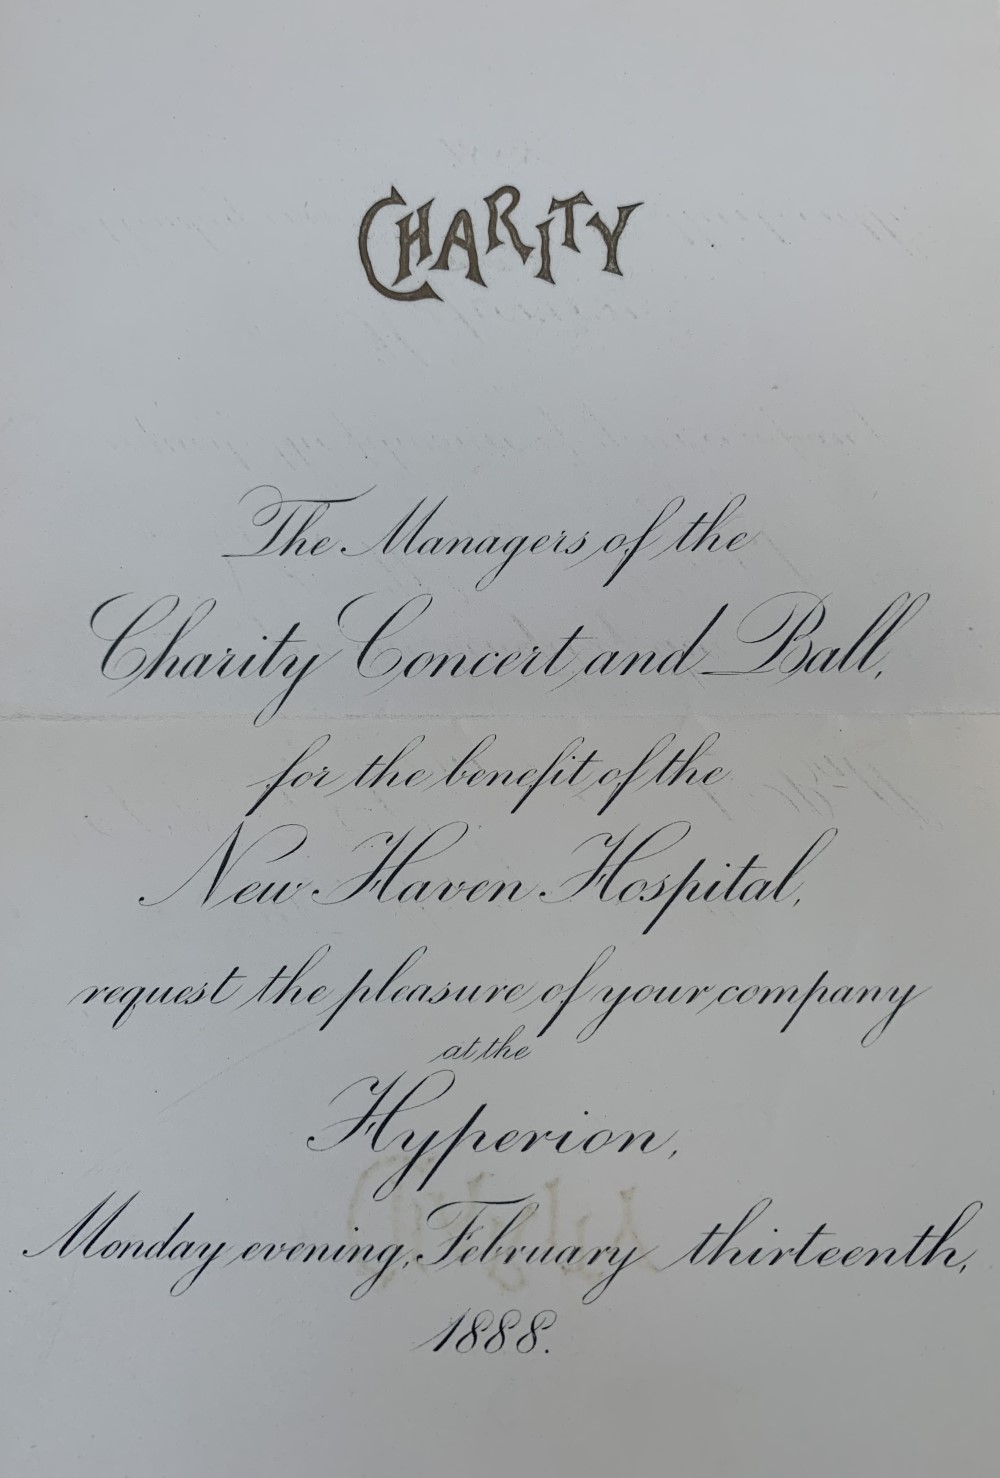 CHARITY
The Managers of the
Charity Concert and Ball,
for the benefit of the
New Haven Hospital,
request the pleasure of your company
at the
Hyperion,
Monday evening, February thirteenth,
1888.